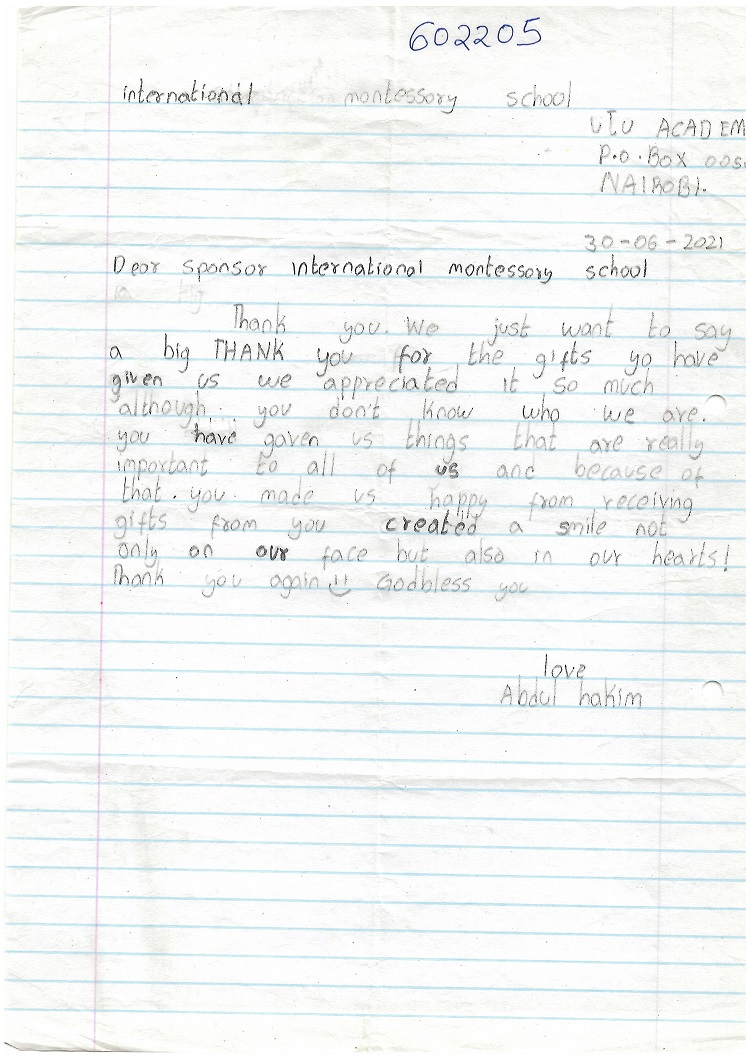 602205
international montessory school
UTU ACADEM
P.O.BOX 00
NAIROBI.
30-06-2021
Dear sponsor international montessory school
Thank you. We just want to say
a big THANK you for the gifts yo have
given us we appreciated it so much
although. you don't know who we are.
you have gaven us things that are really
important to all of us and because of
that. you. made us happy from receiving
gifts from you created a smile not
only on our face but also in our hearts!
Thank you again Godbless you
love
Abdul hakim